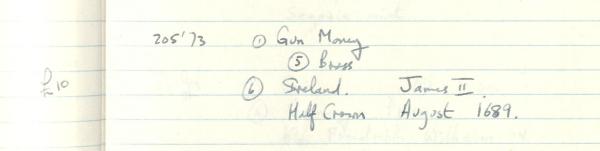 205'73 ① Gun Money
⑤ Brass
⑥ Ireland. James II.
Half Crown August 1689.
10